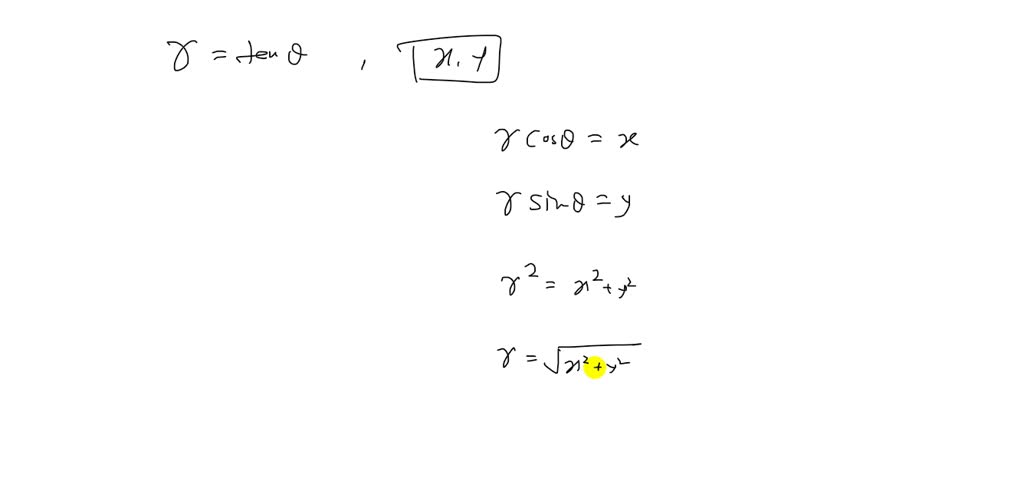 r = tan θ , x, y
r cosθ = x
r sinθ = y
r² = x² + y²
r = √x² + y²